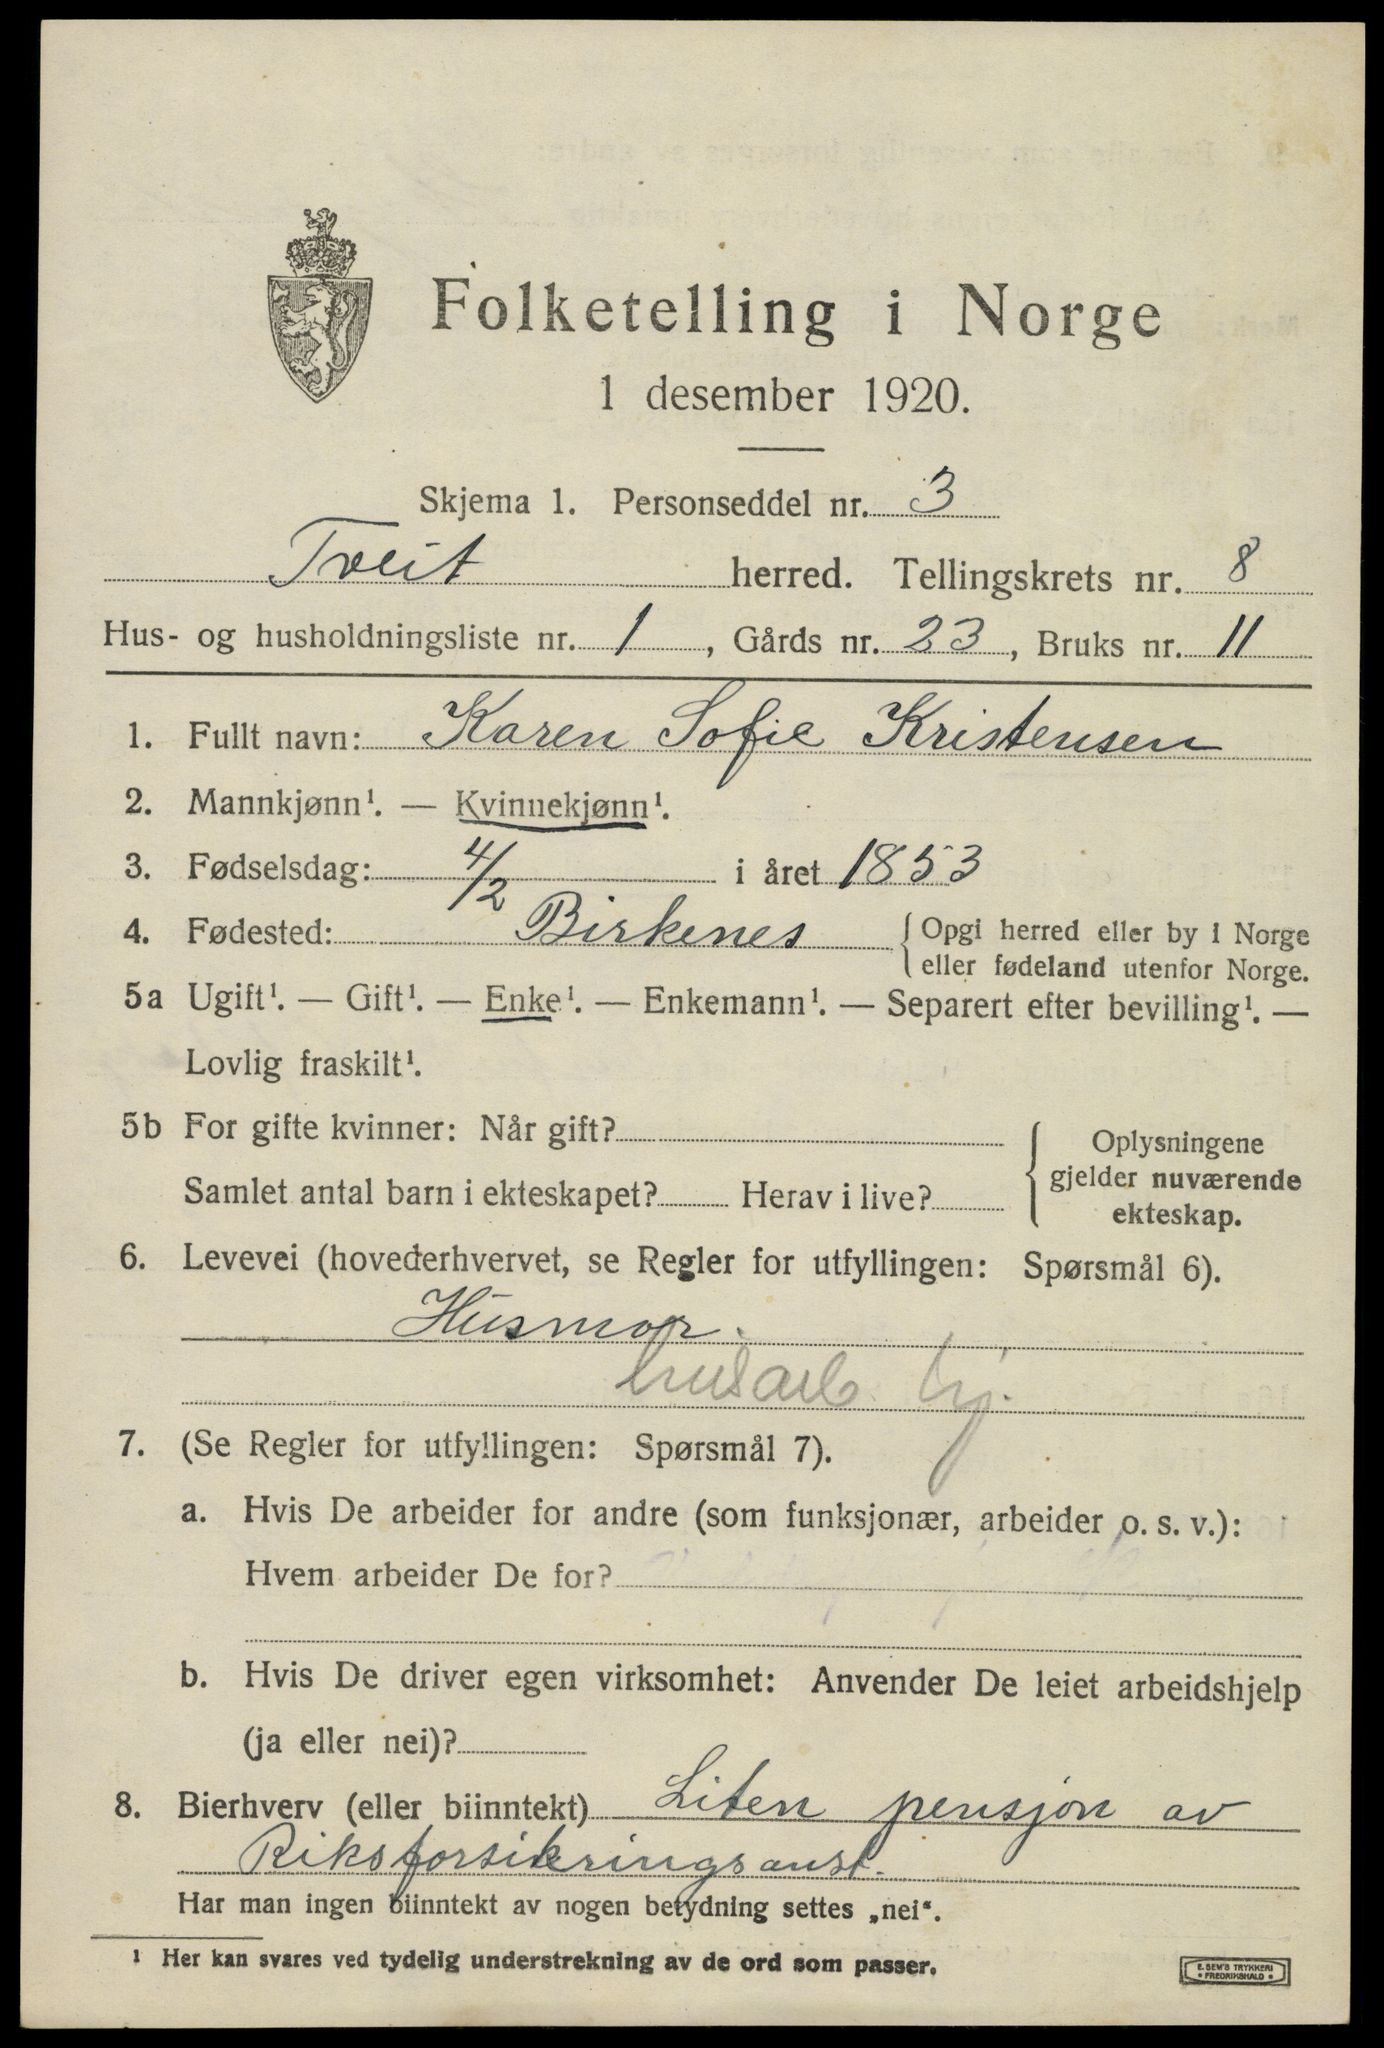 Folketelling i Norge
1 desember 1920.
Skjema 1. Personseddel nr. 3
Tveit herred. Tellingskrets nr. 8
Hus- og husholdningsliste nr. 1, Gårds nr. 23, Bruks nr. 11
1. Fullt navn: Karen Sofie Kristensen
2. Mannkjønn¹. — Kvinnekjønn¹.
3. Fødselsdag: 4/2 i året 1853
4. Fødested: Birkenes {Opgi herred eller by i Norge
eller fødeland utenfor Norge.
5a Ugift¹. — Gift¹. — Enke¹. — Enkemann¹. — Separert efter bevilling¹. —
Lovlig fraskilt¹.
5b For gifte kvinner: Når gift?
Samlet antal barn i ekteskapet? Herav i live?
Oplysningene
gjelder nuværende
ekteskap.
6. Levevei (hovederhvervet, se Regler for utfyllingen: Spørsmål 6).
Husmor.
husarb. hj.
7. (Se Regler for utfyllingen: Spørsmål 7).
a. Hvis De arbeider for andre (som funksjonær, arbeider o. s. v.):
Hvem arbeider De for?
b. Hvis De driver egen virksomhet: Anvender De leiet arbeidshjelp
(ja eller nei)?
8. Bierhverv (eller biinntekt) Liten pensjon av
Riksforsikringsanst.
Har man ingen biinntekt av nogen betydning settes „nei“.
¹ Her kan svares ved tydelig understrekning av de ord som passer.
E. SEM'S TRYKKERI
• FREDRIKSHALD •